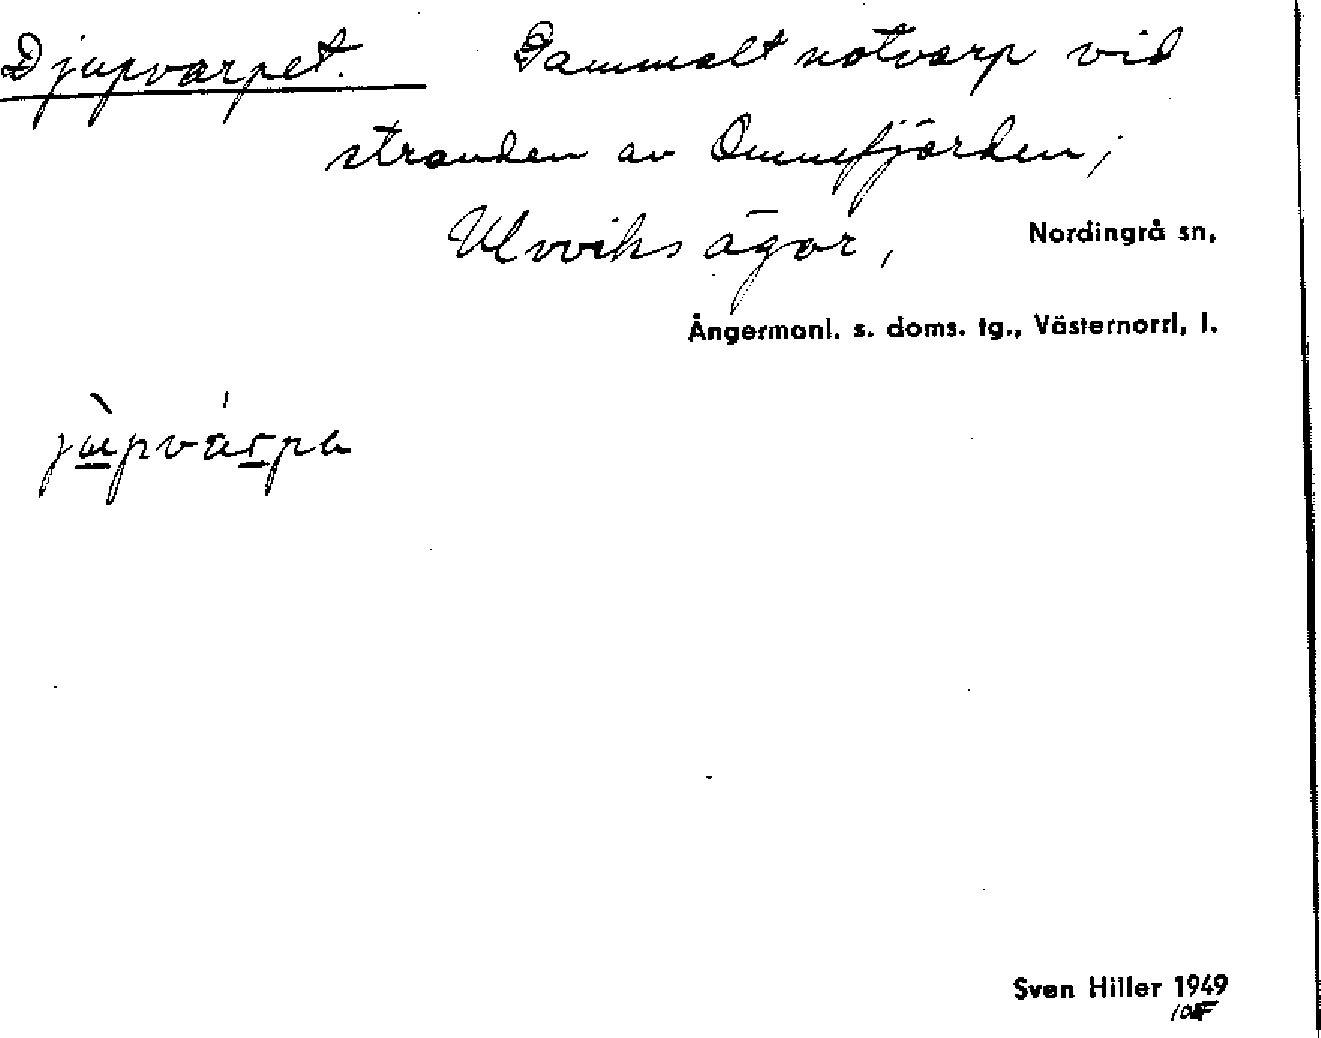 Djupvarpet. Gammalt notvarp vid
stranden av Omnefjärden;
Ulvviks ägor, Nordingrå sn,
Ångermanl. s. doms. tg., Västernorrl, l.
Sven Hiller 1949